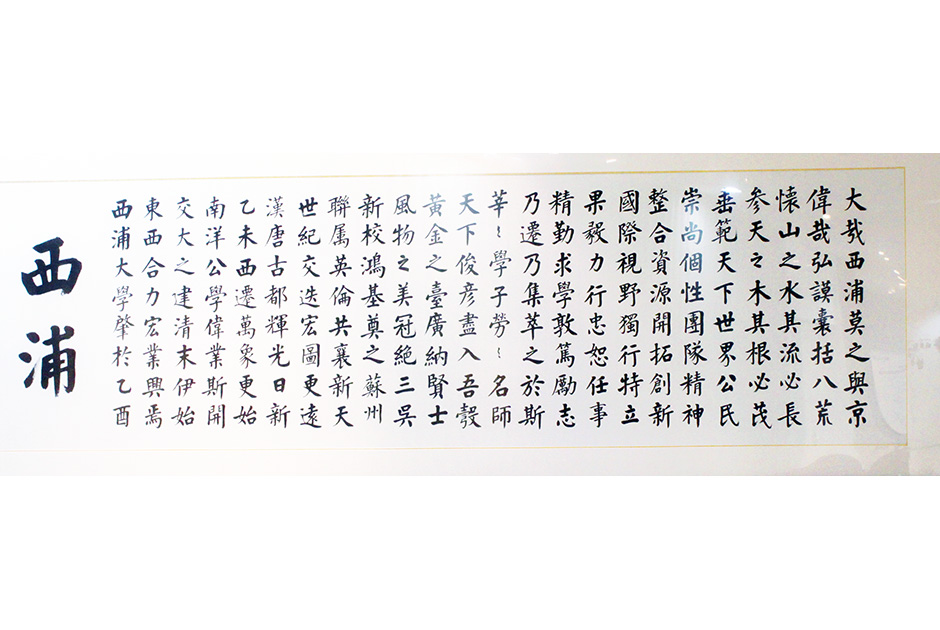 西浦
西浦大學肇於乙酉
東西合力宏業興焉
交大之建清末伊始
南洋公學偉業斯開
乙未西遷萬象更始
漢唐古都輝光日新
世紀交迭宏圖更遠
聯属英倫共襄新天
新校鴻基奠之蘇州
風物之美冠絕三吳
黃金之臺廣納賢士
天下俊彥盡入吾彀
莘〻學子勞〻名師
乃遷乃集萃之於斯
精勤求學敦篤勵志
果毅力行忠恕任事
國際視野獨行特立
整合資源開拓創新
崇尚個性團隊精神
垂範天下世界公民
參天之木其根必茂
懷山之水其流必長
偉哉弘謨囊括八荒
大哉西浦莫之與京